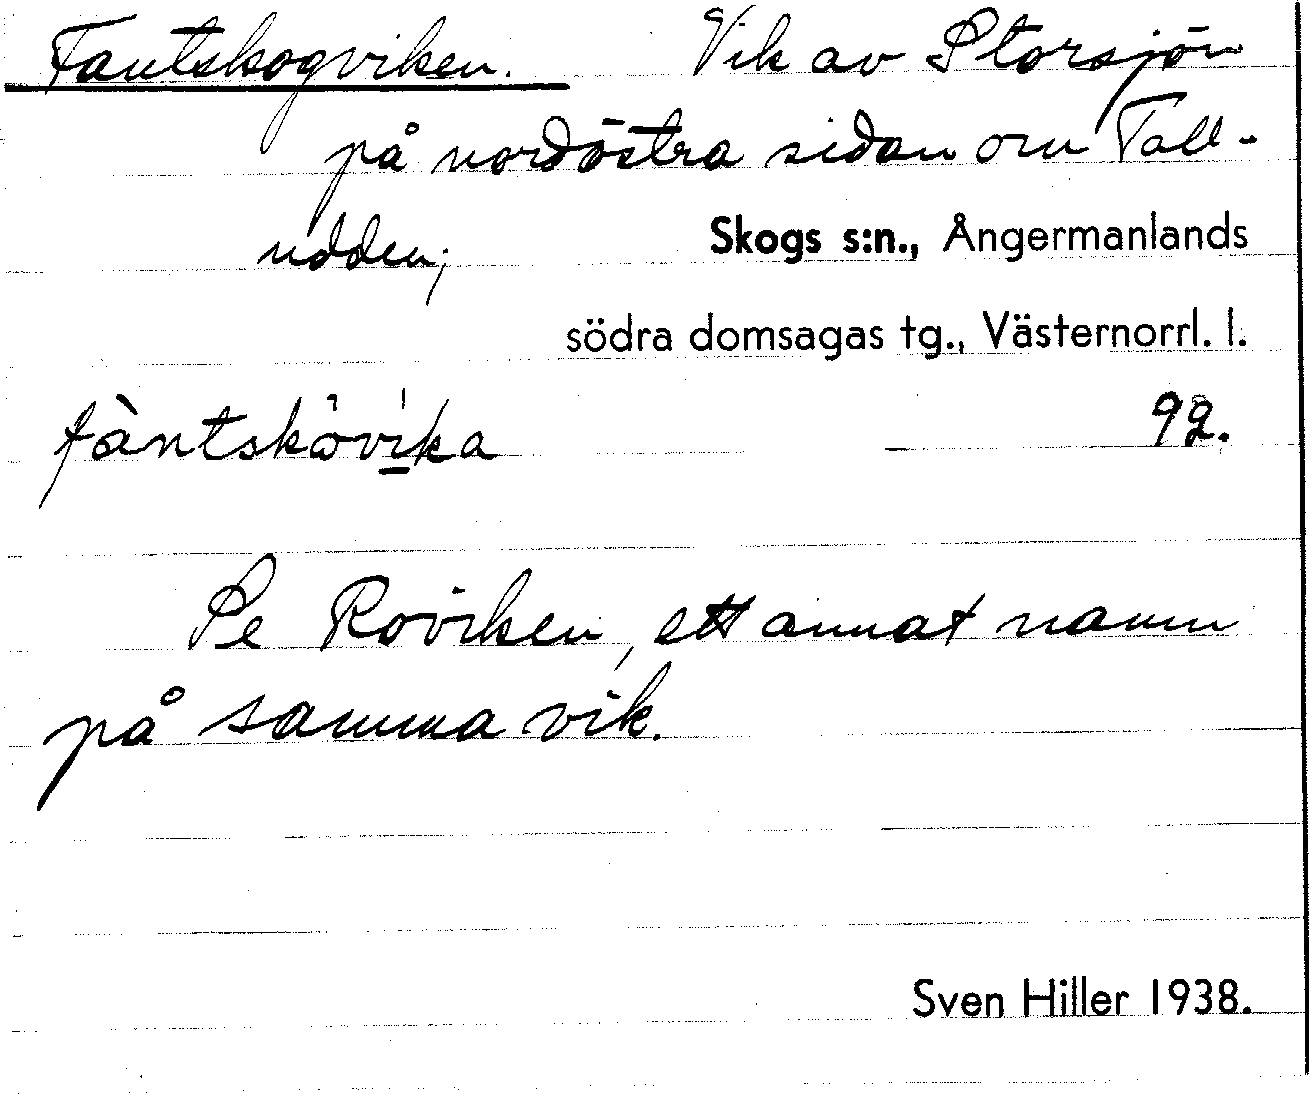 Fantskogviken. Vik av Storsjön
på nordöstra sidan om Tall-
udden;
Skogs s:n., Ångermanlands
södra domsagas tg., Västernorrl. l.
fàntskövika 92.
Se Roviken, ett annat namn
på samma vik.
Sven Hiller 1938.